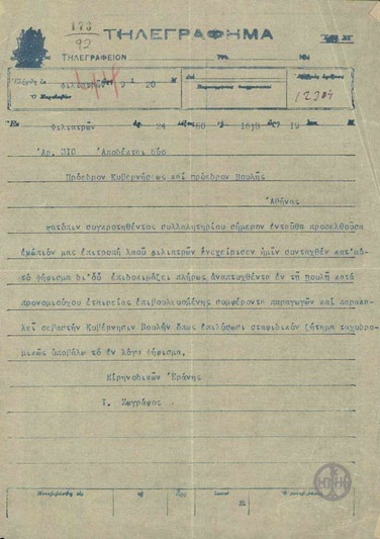 173
92
ΤΗΛΕΓΡΑΦΗΜΑ
ΤΗΛΕΓΡΑΦΕΙΟΝ
Φιλιατρών 9 20
12304
Εκ Φιλιατρών 24 160 1618 27 19
Αρ. 310 Αποδέκται δύο
Πρόεδρον Κυβερνήσεως καί πρόεδρον Βουλής
Αθήνας
Κατόπιν συγκροτηθέντος συλλαλητηρίου σήμερον ένταύθα προσελθούσα
ένώπιόν μας έπιτροπή λαού Φιλιατρών ένεχείρισεν ήμίν συνταχθέν κατ'αύ
τό ψήφισμα δι'ού έπιδοκιμάζει πλήρως άναπτυχθέντα έν τή Βουλή κατά
προνομιούχου έταιρείας έπιβουλευομένης συμφέροντα παραγωγών καί παρακα
λεί σεβαστήν Κυβέρνησιν Βουλήν όπως έπιλύσωσι σταφιδικόν ζήτημα ταχυδρο
μικώς ύποβάλω τό έν λόγω ψήφισμα.
Είρηνοδίκης Έράνης
Ι. Ζωγράφος